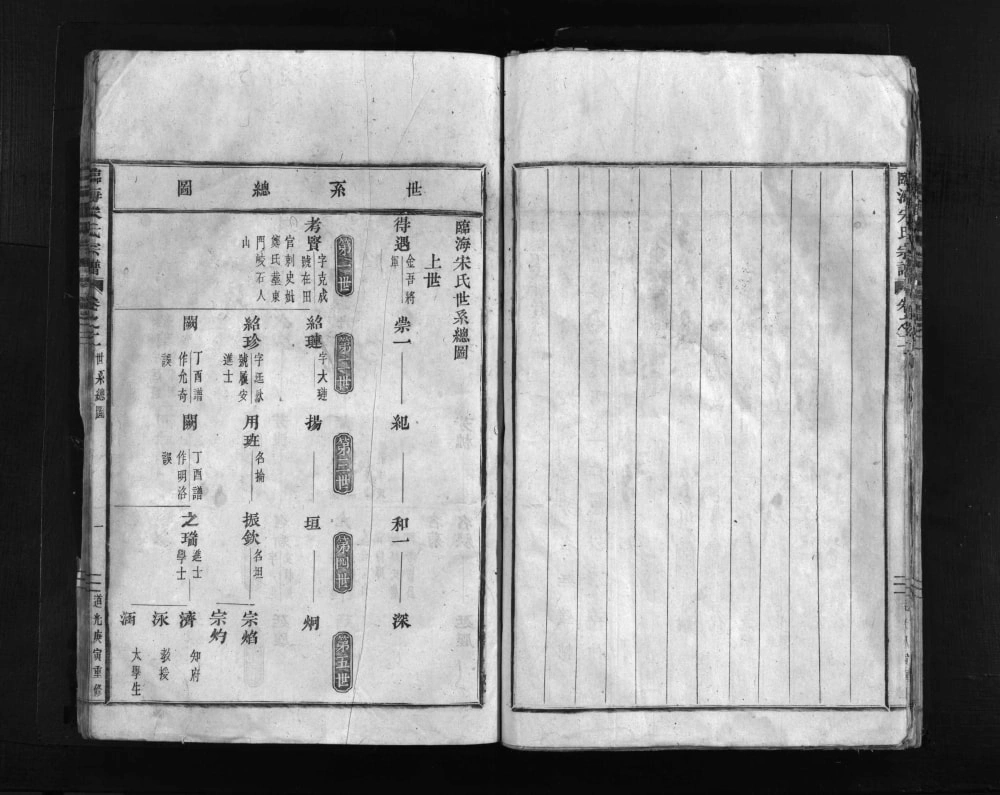 臨海宋氏宗譜
世系總圖
臨海宋氏世系總圖
上世
待遇 金吾將軍
崇一
紀
和一
深
第一世
第二世
第三世
第四世
第五世
考賢 字克成 號在田 官刺史妣 鄭氏墓東 門峧石人 山
紹璉 字大璉
揚
垣
炯
紹珍 字廷欽 號履安 進士
用班 名掄
振欽 名坦
宗焰
宗灼
闕 丁酉譜 作允奇 誤
闕 丁酉譜 作明洛 誤
之瑞 進士 學士
濟 知府
泳 教授
涵 大學生
臨海宋氏宗譜
世系總圖
一
道光庚寅重修